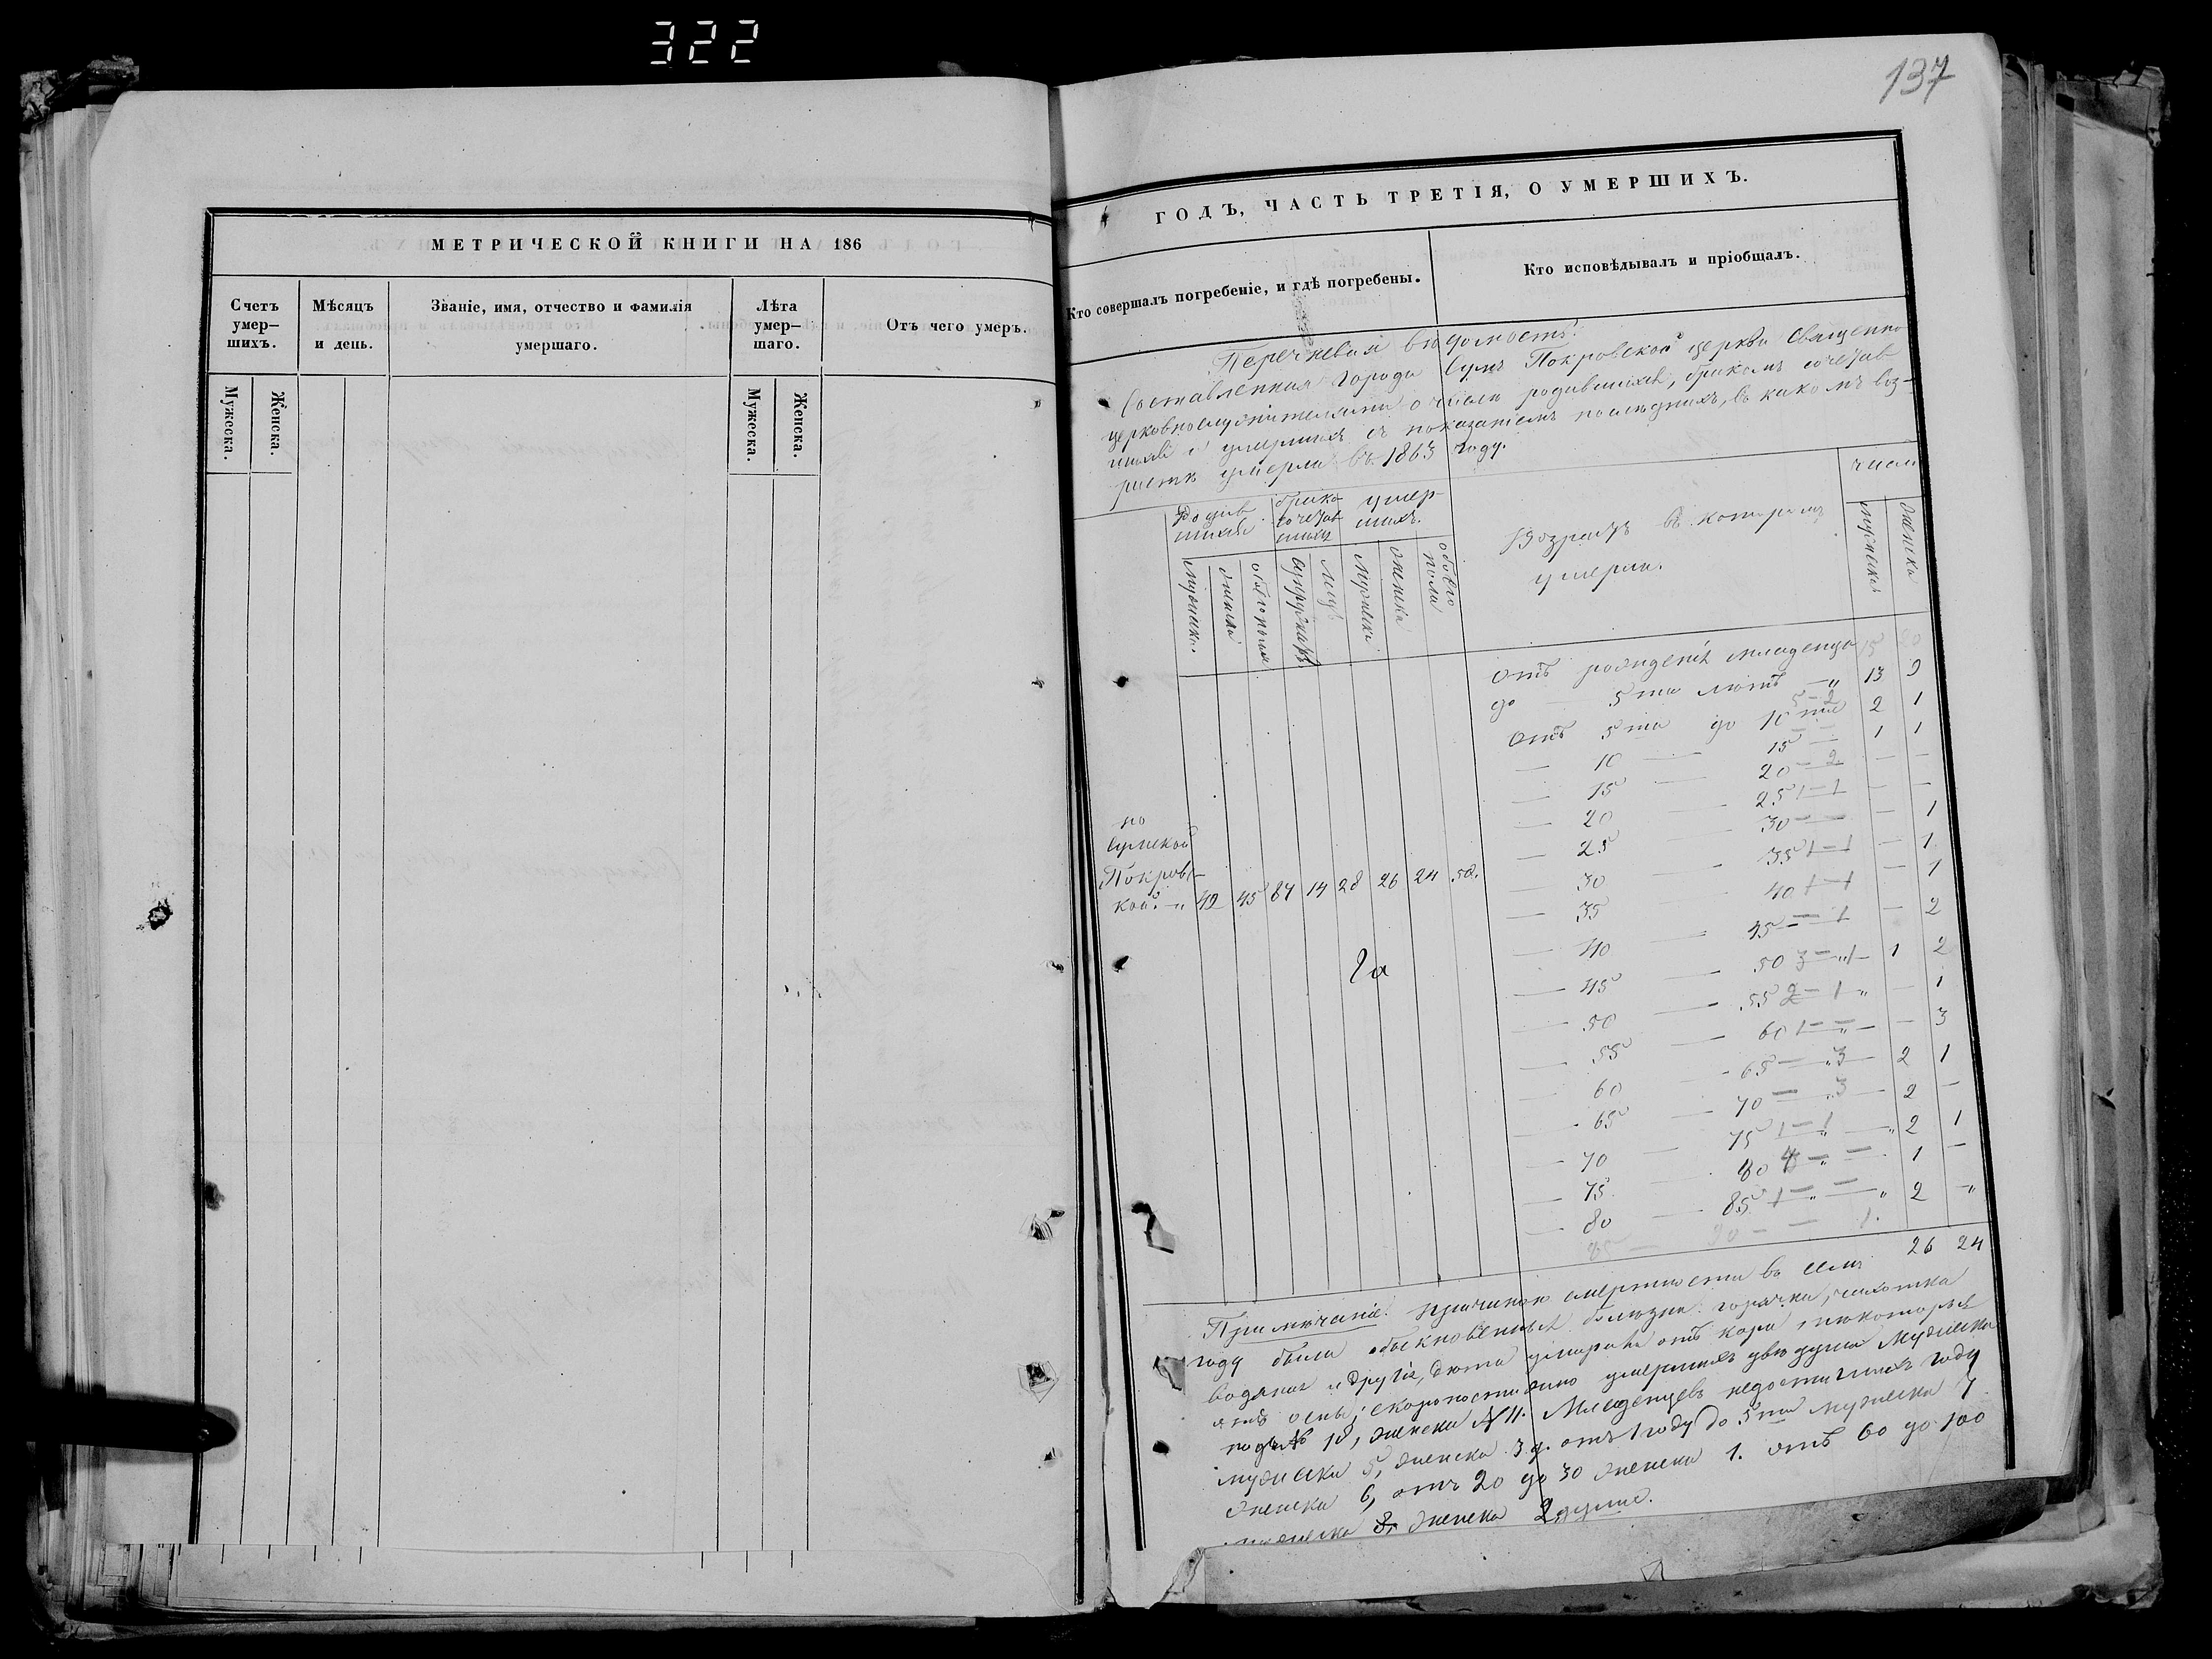 322
137
МЕТРИЧЕСКОЙ КНИГИ НА 186
Счетъ умер-
шихъ.
Мѣсяцъ
и день.
Званіе, имя, отчество и фамилія
умершаго.
Лѣта
умер-
шаго.
Отъ чего умеръ.
Мужеска.
Женска.
Мужеска.
Женска.
ГОДЪ, ЧАСТЬ ТРЕТІЯ, О УМЕРШИХЪ.
Кто совершалъ погребеніе, и гдѣ погребены.
Кто исповѣдывалъ и пріобщалъ.
Перечневая вѣдомость.
Составленная города Сумъ Покровской церкви Священно
церковнослужителями о числѣ родившихся, бракомъ сочетав
шихся и умершихъ съ показаніемъ послѣднихъ, въ какомъ воз-
растѣ умерли въ 1863 году.
Родив
шихся
брако
сочетав
шихся
умер-
шихъ.
Возрастъ въ которомъ
умерли.
число
мужеска
женска
мужеска.
женска
обоего пола
супружествъ
лицъ
мужеска
женска
обоего пола
Отъ рожденія младенца 15 20
до 5ти лѣтъ — 13 9
Отъ 5ти до 10ти 5-2 2 1
— 10 — 15 — 1 1
— 15 — 20 - 2 — —
— 20 — 25 1-1 — —
— 25 — 30 — — 1
— 30 — 35 1-1 — 1
— 35 — 40 1-1 — 1
— 40 — 45 — 1 — 2
— 45 — 50 3 — 1 2
— 50 — 55 2 - 1 — 1
— 55 — 60 1 — — 3
— 60 — 65 — 3 2 1
— 65 — 70 — 3 2 —
— 70 — 75 1-1 2 1
— 75 — 80 4 — 1 —
— 80 — 85 1 — 2 "
85 — 90 — 1.
26 24
по
Сумской
Покровс-
кой. 42 45 87 14 28 26 24 50.
Примѣчаніе. Причиною смертности въ семъ
году были обыкновенныя болѣзни: горячка, чахотка
водяная и другія, дѣти умирали отъ кори, и некоторыя
отъ оспы; скоропостижно умершихъ двѣ души мужеска
подъ № 18, женска № 11. Младенцевъ недостигшихъ году
мужеска 5, женска 3 д. отъ 1 году до 5ти мужеска 7
женска 6, отъ 20 до 30 женска 1. отъ 60 до 100
мужеска 8, женска 2 души.